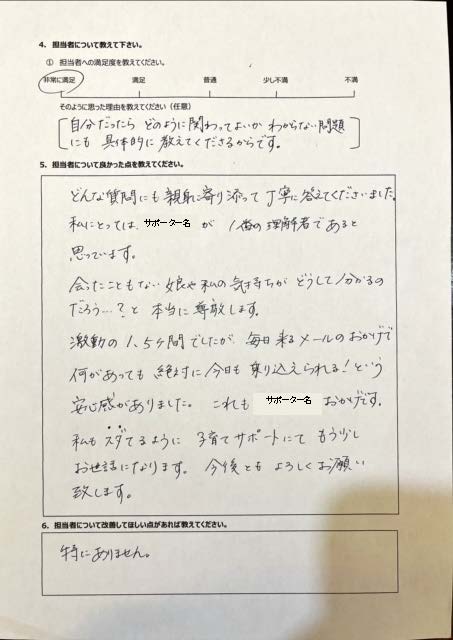 4. 担当者について教えて下さい。
① 担当者への満足度を教えてください。
非常に満足 満足 普通 少し不満 不満
そのように思った理由を教えてください（任意）
自分だったら どのように関わってよいか わからない問題
にも 具体的に教えてくださるからです。
5. 担当者について良かった点を教えてください。
どんな質問にも親身に寄り添って丁寧に答えてくださいました。
私にとっては、サポーター名 が 1番の理解者であると
思っています。
会ったこともない娘や私の気持ちが どうして分かるの
だろう…？と 本当に尊敬します。
激動の1.5ヶ間でしたが、毎日来るメールのおかげで
何があっても絶対に今日も乗り込えられる！という
安心感がありました。これも サポーター名 おかげです。
私もスダてるように 子育てサポートにて もう少し
お世話になります。今後とも よろしくお願い
致します。
6. 担当者について改善してほしい点があれば教えてください。
特にありません。